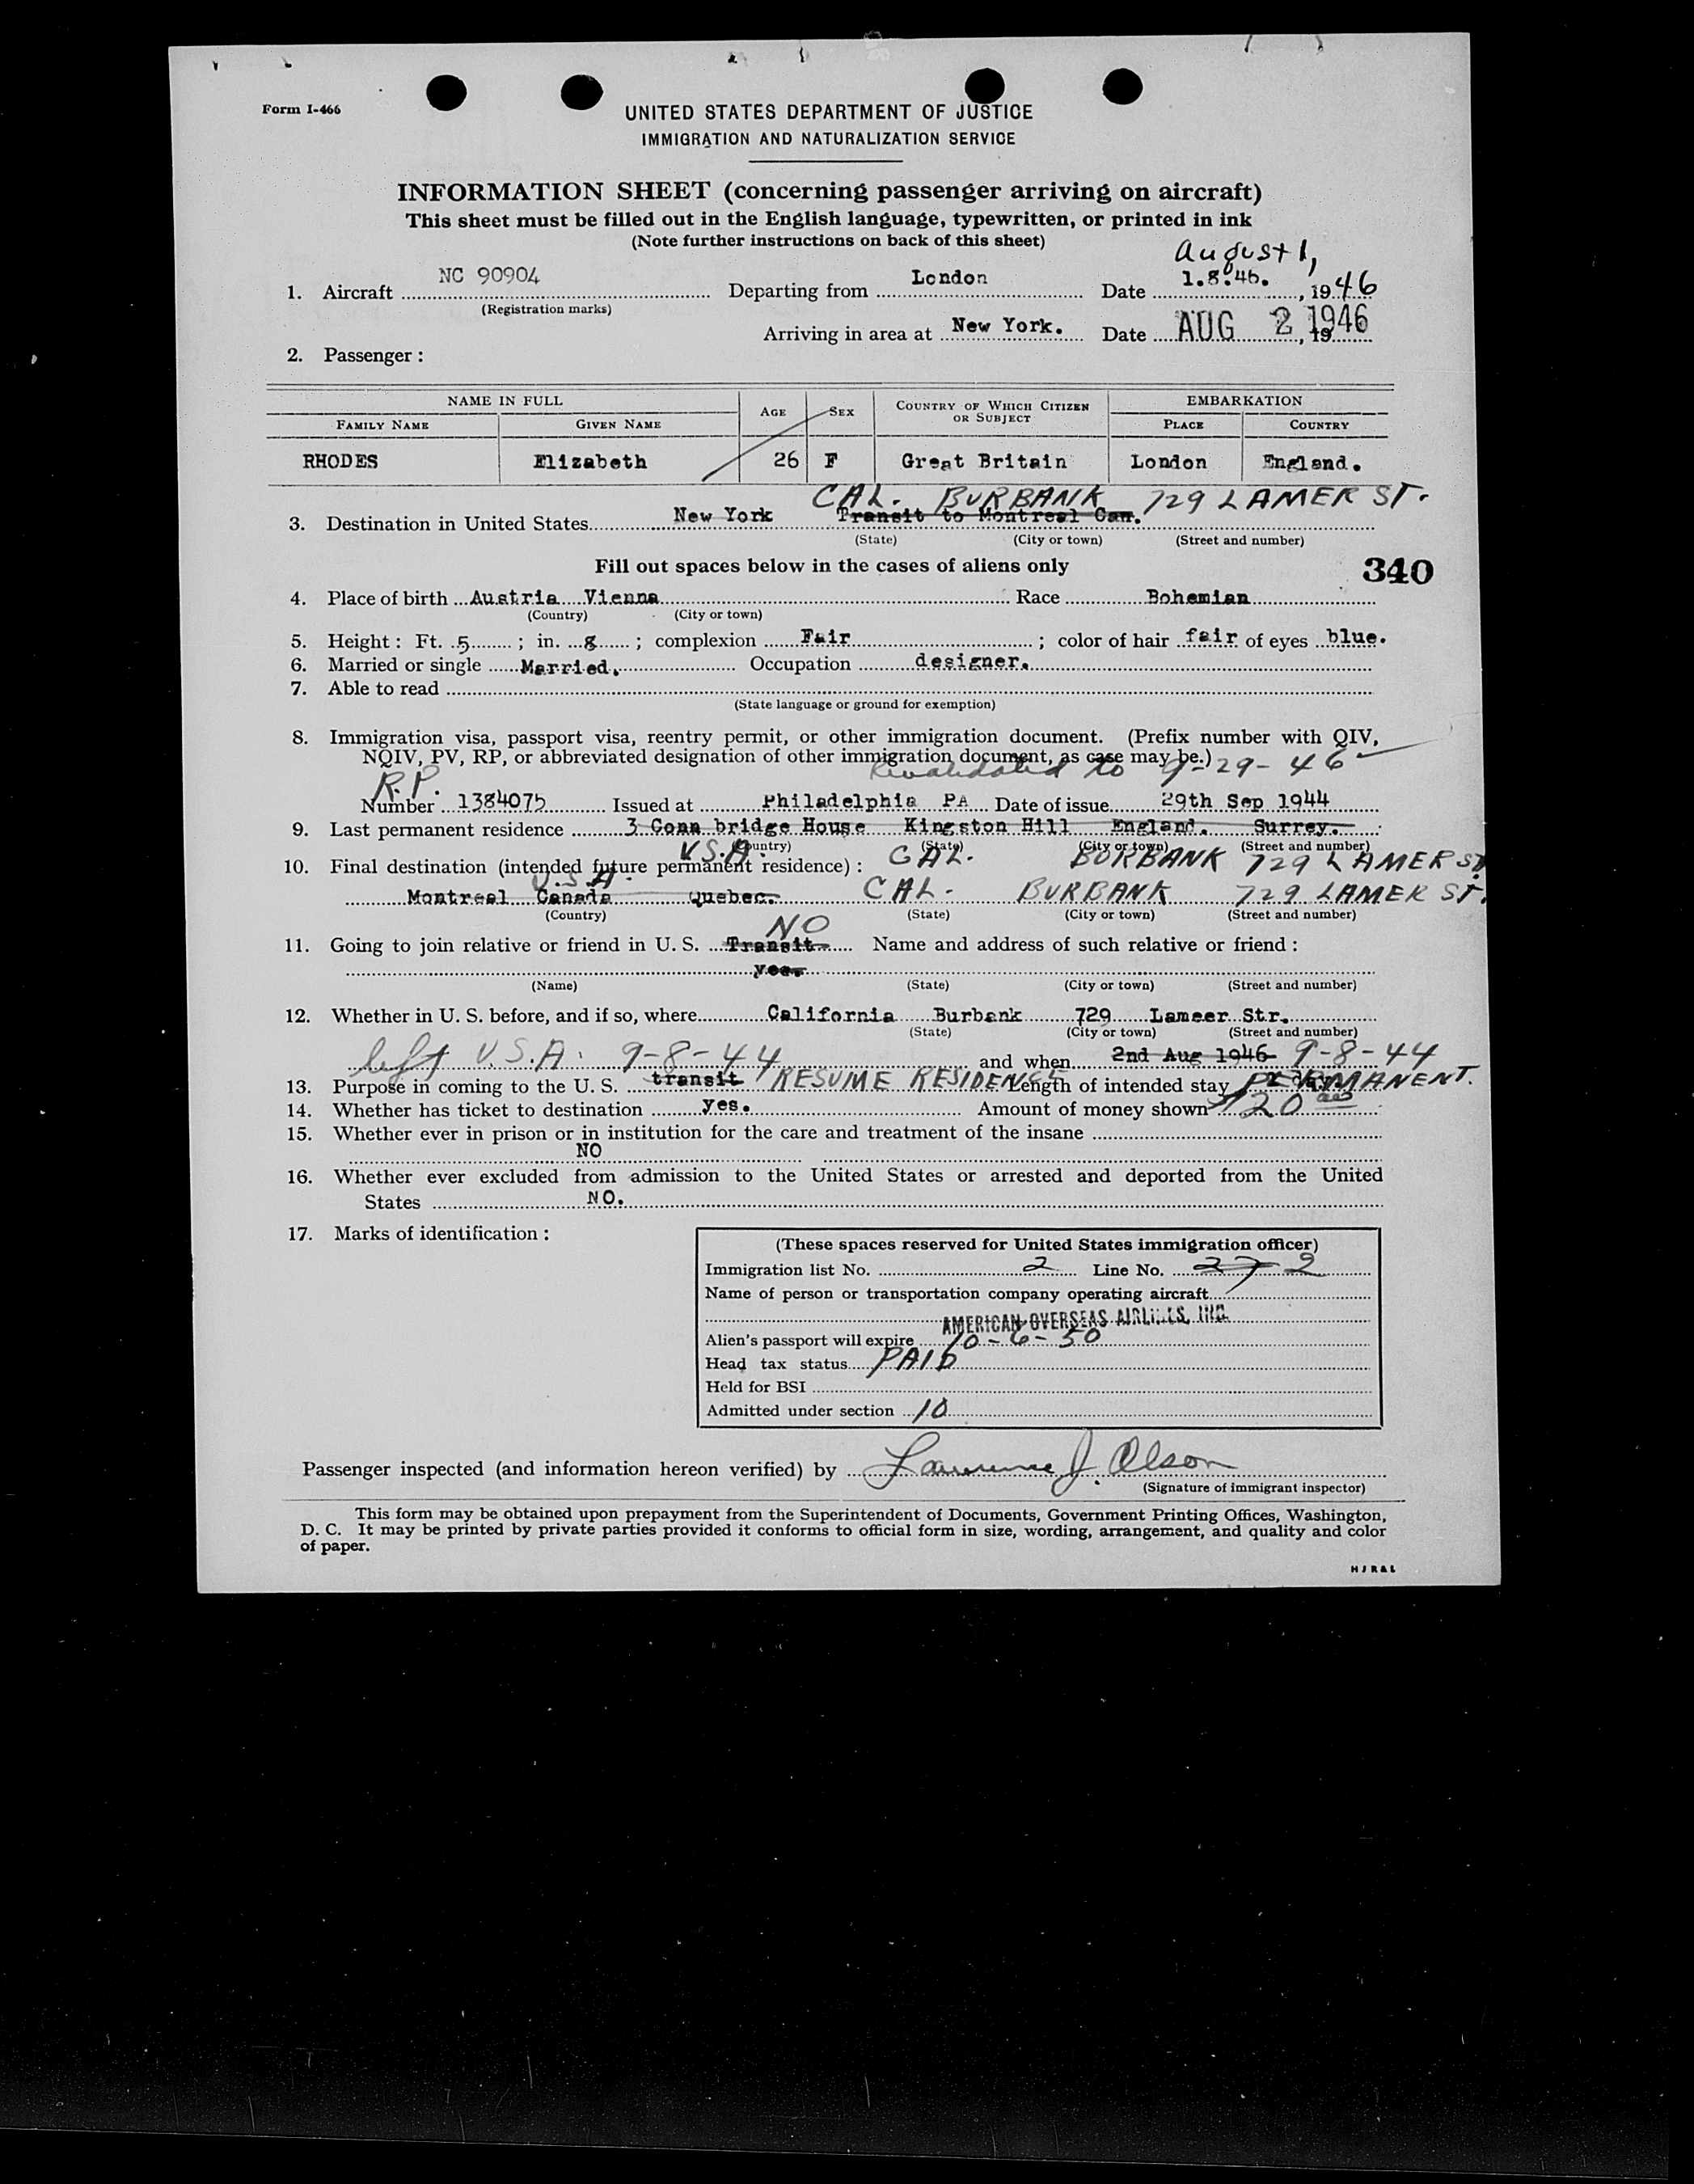 Form I-466
UNITED STATES DEPARTMENT OF JUSTICE
IMMIGRATION AND NATURALIZATION SERVICE
INFORMATION SHEET (concerning passenger arriving on aircraft)
This sheet must be filled out in the English language, typewritten, or printed in ink
(Note further instructions on back of this sheet)
August 1,
1. Aircraft NC 90904 Departing from London Date 1.8.46. , 1946
(Registration marks)
Arriving in area at New York. Date AUG 2 1946 , 19
2. Passenger :
NAME IN FULL AGE SEX COUNTRY OF WHICH CITIZEN OR SUBJECT EMBARKATION
FAMILY NAME GIVEN NAME PLACE COUNTRY
RHODES Elizabeth 26 F Great Britain London England.
CAL. BURBANK 729 LAMER ST.
3. Destination in United States New York Transit to Montreal Can.
(State) (City or town) (Street and number)
Fill out spaces below in the cases of aliens only 340
4. Place of birth Austria Vienna Race Bohemian
(Country) (City or town)
5. Height : Ft. 5 ; in. 8 ; complexion Fair ; color of hair fair of eyes blue.
6. Married or single Married. Occupation designer.
7. Able to read
(State language or ground for exemption)
8. Immigration visa, passport visa, reentry permit, or other immigration document. (Prefix number with QIV,
NQIV, PV, RP, or abbreviated designation of other immigration document, as case may be.)
R.P. Revalidated to 9-29-46
Number 1384075 Issued at Philadelphia PA Date of issue 29th Sep 1944
9. Last permanent residence 3 Conn bridge House Kingston Hill England. Surrey.
(Country) (State) (City or town) (Street and number)
U.S.A. CAL. BURBANK 729 LAMER ST.
10. Final destination (intended future permanent residence) :
U.S.A.
Montreal Canada Quebec. CAL. BURBANK 729 LAMER ST.
(Country) (State) (City or town) (Street and number)
NO
11. Going to join relative or friend in U. S. Transit Name and address of such relative or friend :
yes.
(Name) (State) (City or town) (Street and number)
12. Whether in U. S. before, and if so, where California Burbank 729 Lameer Str.
(State) (City or town) (Street and number)
left U.S.A. 9-8-44 and when 2nd Aug 1946 9-8-44
13. Purpose in coming to the U. S. transit RESUME RESIDENCE Length of intended stay PERMANENT.
14. Whether has ticket to destination yes. Amount of money shown $120
15. Whether ever in prison or in institution for the care and treatment of the insane
NO
16. Whether ever excluded from admission to the United States or arrested and deported from the United
States NO.
17. Marks of identification :
(These spaces reserved for United States immigration officer)
Immigration list No. 2 Line No. 27 2
Name of person or transportation company operating aircraft
AMERICAN OVERSEAS AIRLINES, INC.
Alien's passport will expire 10-6-50
Head tax status PAID
Held for BSI
Admitted under section 10
Passenger inspected (and information hereon verified) by Lawrence J. Olson
(Signature of immigrant inspector)
This form may be obtained upon prepayment from the Superintendent of Documents, Government Printing Offices, Washington,
D. C. It may be printed by private parties provided it conforms to official form in size, wording, arrangement, and quality and color
of paper.
HJR&L